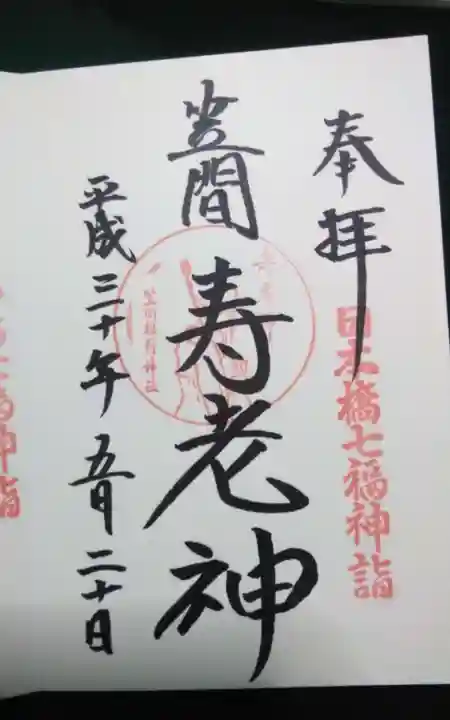 奉拝
日本橋七福神詣
笠間
寿老神
笠間稲荷神社
平成三十年五月二十日
福神詣